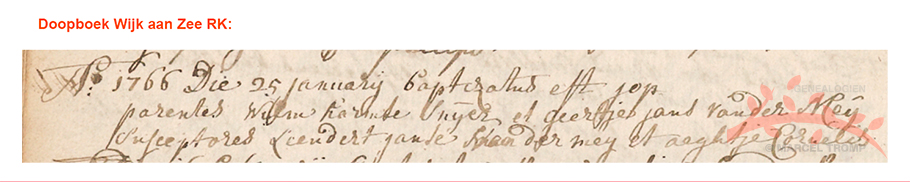 Doopboek Wijk aan Zee RK:
1766 Die 25 january baptizatus est jop
parentes Willm Snyer et geertje jans vander Meÿ
susceptores Leendert janse van der mey et aeghtje
GENEALOGIEN
MARCEL TROMP